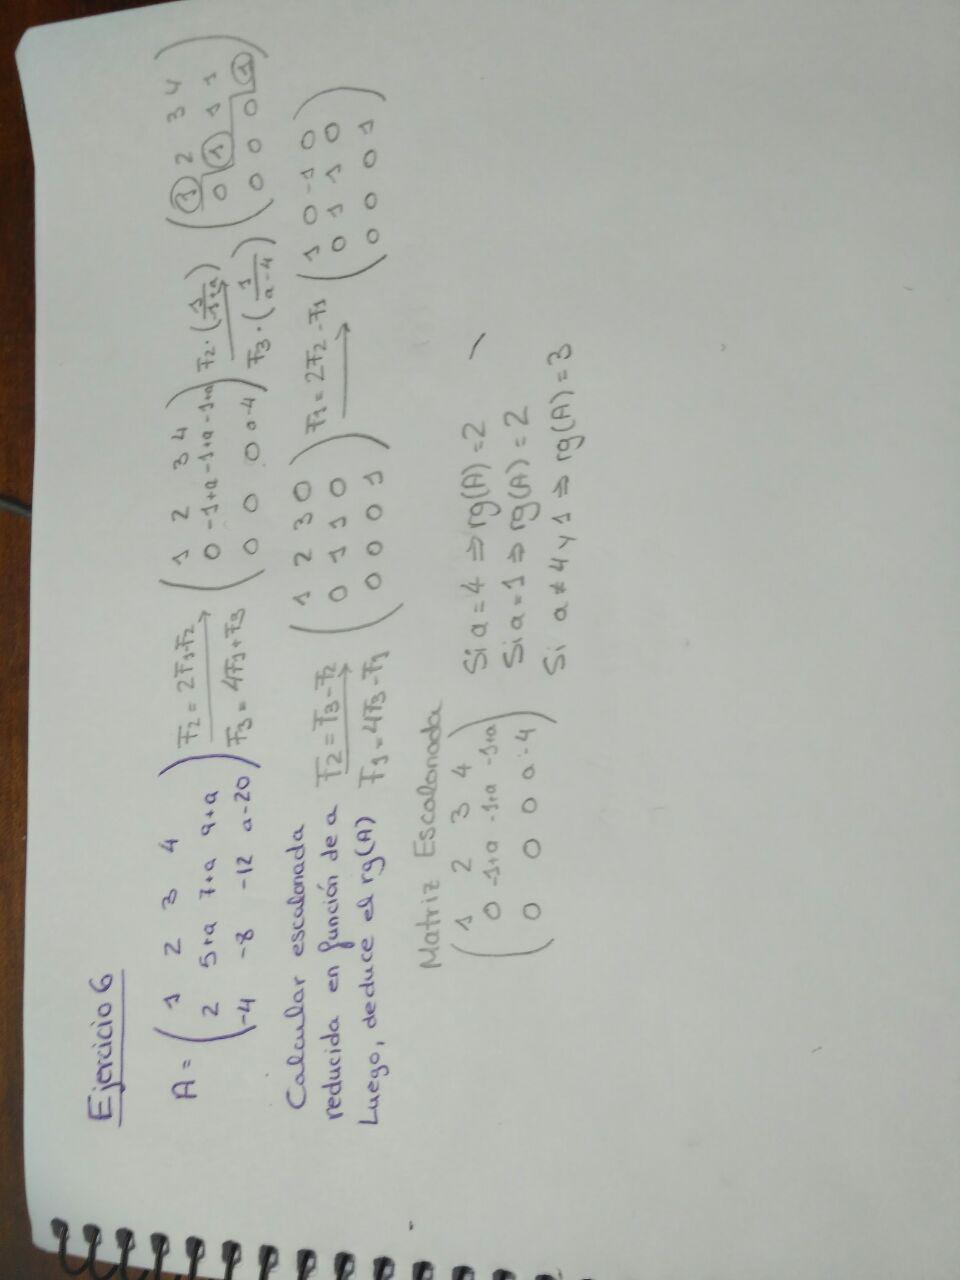 Ejercicio 6
A = ( 1 2 3 4
2 5+a 7+a 9+a
-4 -8 -12 a-20 )
F2 = 2F1-F2
F3 = 4F1+F3
( 1 2 3 4
0 -1+a -1+a -1+a
0 0 0 a-4 )
F2·(1/-1+a)
F3·(1/a-4)
( 1 2 3 4
0 1 1 1
0 0 0 1 )
Calcular escalonada
reducida en función de a
Luego, deduce el rg(A)
F2 = F3-F2
F1 = 4F3-F1
( 1 2 3 0
0 1 1 0
0 0 0 1 )
F1 = 2F2-F1
( 1 0 -1 0
0 1 1 0
0 0 0 1 )
Matriz Escalonada
( 1 2 3 4
0 -1+a -1+a -1+a
0 0 0 a-4 )
Si a = 4 ⇒ rg(A) = 2
Si a = 1 ⇒ rg(A) = 2
Si a ≠ 4 y 1 ⇒ rg(A) = 3